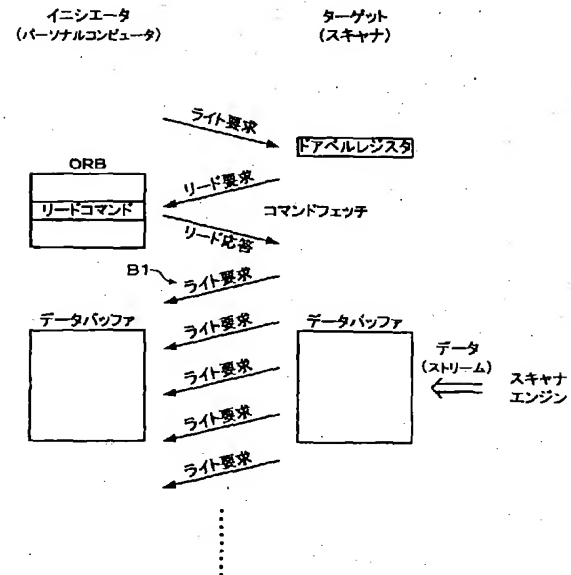 イニシエータ
(パーソナルコンピュータ)
ターゲット
(スキャナ)
ライト要求
ドアベルレジスタ
ORB
リード要求
リードコマンド
コマンドフェッチ
リード応答
B1
ライト要求
データバッファ
ライト要求
データバッファ
データ
(ストリーム)
スキャナ
エンジン
ライト要求
ライト要求
ライト要求